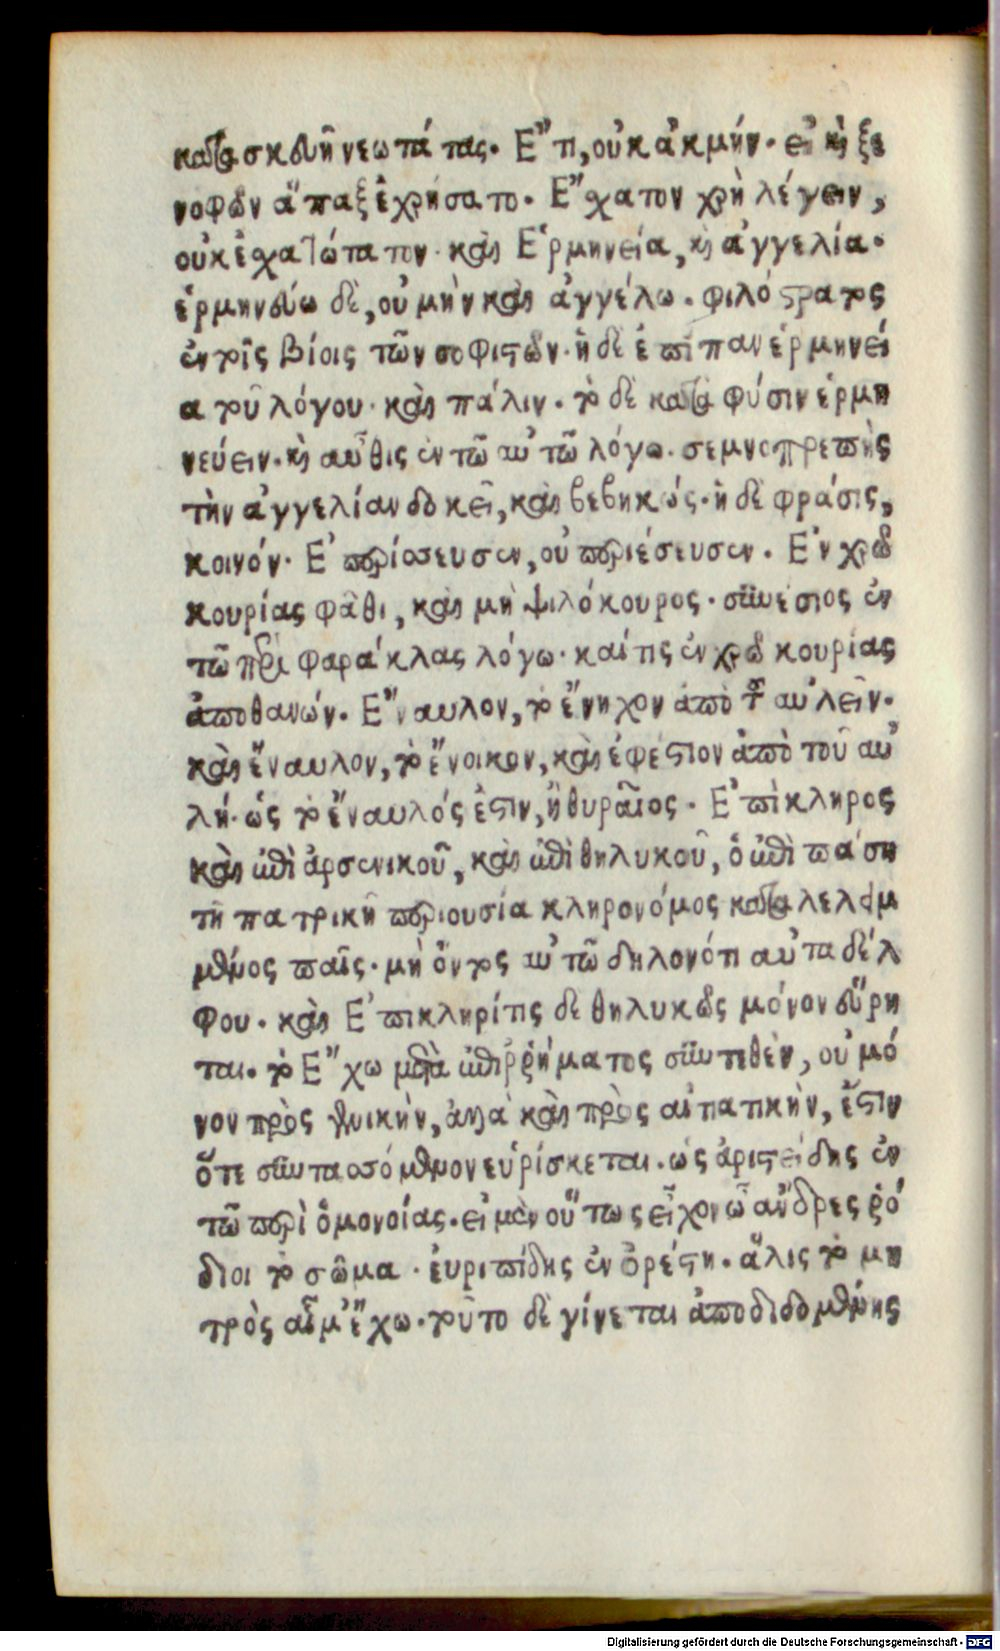 κατασκευῆ νεωτάτης. Ἔτι, οὐκ ἀκμήν. εἰ κὴ ξε
νοφῶν ἅπαξ ἐχρήσατο. Ἔσχατον χρὴ λέγειν,
οὐκ ἐσχατώτατον. καὶ Ἑρμηνεία, κὴ ἀγγελία.
ἑρμηνεύω δὲ, οὐ μὴν καὶ ἀγγέλω. φιλόστρατος
ἐν τοῖς βίοις τῶν σοφιστῶν. ἡ δὲ ἐπιπαν ἑρμηνεί
α τοῦ λόγου. καὶ πάλιν. τὸ δὲ κατὰ φύσιν ἑρμη
νεύειν. κὴ αὖθις ἐν τῶ αὐτῶ λόγω. σεμνοπρεπὴς
τὴν ἀγγελίαν δοκεῖ, καὶ βεβηκώς. ἡ δὲ φράσις,
κοινόν. Ἐπερίσσευσεν, οὐ περιέσευσεν. Ἐν χρῶ
κουρίας φᾶθι, καὶ μὴ ψιλόκουρος. συνέσιος ἐν
τῶ περὶ φαράκλας λόγω. καί τις ἐν χρῶ κουρίας
ἀποθανών. Ἔναυλον, τὸ ἔνηχον ἀπὸ τοῦ αὐλεῖν.
καὶ ἔναυλον, τὸ ἔνοικον, καὶ ἐφέστιον ἀπὸ τοῦ αὐ
λή. ὡς τὸ ἔναυλός ἐστιν, ἢ θυραῖος. Ἐπίκληρος
καὶ ἐπὶ ἀρσενικοῦ, καὶ ἐπὶ θηλυκοῦ, ὁ ἐπὶ πάση
τῆ πατρικῆ περιουσία κληρονόμος καταλελειμ
μένος παῖς. μὴ ὄντος αὐτῶ δηλονότι αὐταδέλ
φου. καὶ Ἐπικληρίτις δὲ θηλυκῶς μόνον εὕρη
ται. τὸ Ἔχω μετὰ ἐπιρῥήματος συντιθὲν, οὐ μό
νον πρὸς γενικὴν, ἀλλὰ καὶ πρὸς αἰτιατικὴν, ἔστιν
ὅτε συντασσόμενον εὑρίσκεται. ὡς ἀριστείδης ἐν
τῶ περὶ ὁμονοίας. εἰ μὲν οὕτως εἶχον ὦ ἄνδρες ῥό
διοι τὸ σῶμα. ἐυριπίδης ἐν ὀρέστη. ἅλις τὸ μη
τρὸς αἷμ' ἔχω. τοῦτο δὲ γίνεται ἀποδιδομένης
Digitalisierung gefördert durch die Deutsche Forschungsgemeinschaft - DFG